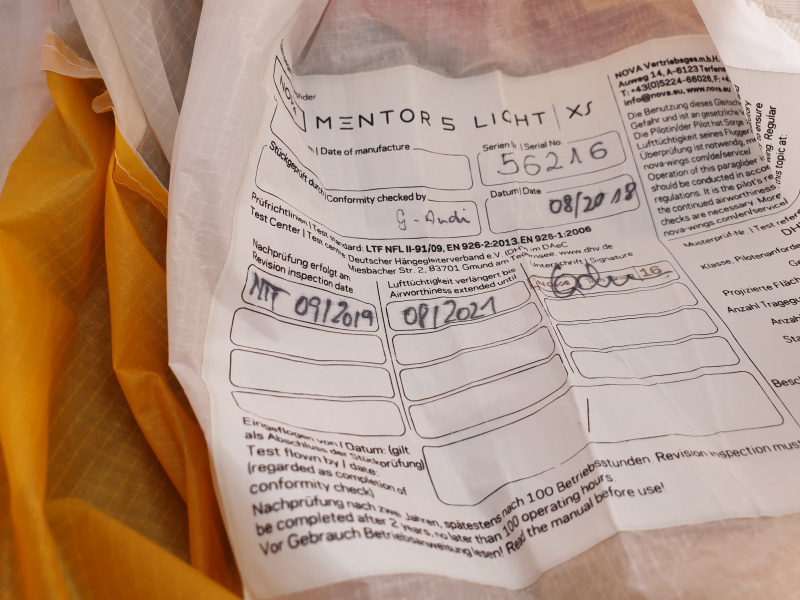 NOVA
MENTOR 5 LICHT | XS
| Date of manufacture
Serien Nr. | Serial No.
56216
Stückgeprüft durch
Conformity checked by
G. Andi
Datum | Date
08/2018
Prüfrichtlinien | Test standard: LTF NFL II-91/09, EN 926-2:2013, EN 926-1:2006
Test Center | Test centre: Deutscher Hängegleiterverband e.V. (DHV) im DAeC
Miesbacher Str. 2, 83701 Gmund am Tegernsee, www.dhv.de
Nachprüfung erfolgt am
Revision inspection date
Lufttüchtigkeit verlängert bis
Airworthiness extended until
Unterschrift | Signature
NTT 09/2019
08/2021
16
Eingeflogen von | Datum: (gilt
als Abschluss der Stückprüfung)
Test flown by | date:
(regarded as completion of
conformity check)
Nachprüfung nach zwei Jahren, spätestens nach 100 Betriebsstunden. Revision inspection must
be completed after 2 years, no later than 100 operating hours.
Vor Gebrauch Betriebsanweisung lesen! Read the manual before use!
NOVA Vertriebsges.m.b.H.
Auweg 14, A-6123 Terfens
T: +43(0)5224-66026, F:
info@nova.eu, www.nova.eu
Die Benutzung dieses Gleitsch
Gefahr und ist an gesetzliche
Die Pilotin/der Pilot hat Sorge
Lufttüchtigkeit seines Flugger
Überprüfung ist notwendig, m
nova-wings.com/de/service/
Operation of this paraglider
should be conducted in accor
regulations. It is the pilot's re
the continued airworthiness
checks are necessary. More
nova-wings.com/en/service/
to ensure
Regular
this topic at:
Musterprüf-Nr. | Test refer
DH
Klasse, Pilotenanforde
Projizierte Fläch
Anzahl Tragegu
Anzahl
Sta
Besch